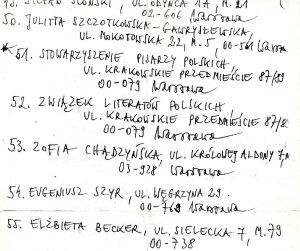 SŁOŃSKI, UL. ODYŃCA 1A, M. 21
02-606 Warszawa
50. JULITTA SZCZOTKOWSKA-GAWRYSZEWSKA,
UL. MOKOTOWSKA 22, M. 5, 00-561 Warszawa
51. STOWARZYSZENIE PISARZY POLSKICH,
UL. KRAKOWSKIE PRZEDMIEŚCIE 87/89
00-079 Warszawa
52. ZWIĄZEK LITERATÓW POLSKICH,
UL. KRAKOWSKIE PRZEDMIEŚCIE 87/8
00-079 Warszawa
53. ZOFIA CHĄDZYŃSKA, UL. KRÓLOWEJ ALDONY
03-928 Warszawa
54. EUGENIUSZ SZYR, UL. WĘGRZYNA 29
00-769 Warszawa
55. ELŻBIETA BECKER, UL. SIELECKA 7, M. 79
00-738